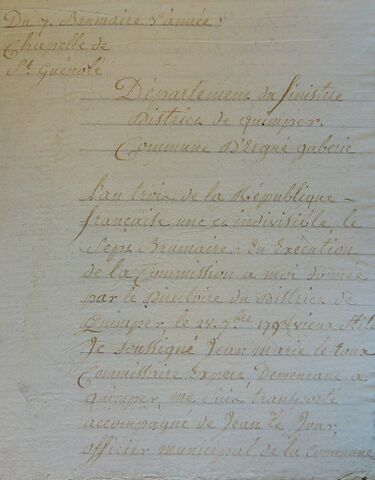 Du 7. Brumaire 3e année.
Chapelle de
St. Guénolé
Département du finistre
District de quimper.
Commune D'Ergué gaberic
L'an trois de la République
française une et indivisible, le
Sept Brumaire. En Exécution
de la Commission a moi donnée
par le Directoire du District de
Quimper, le 28. 7bre 1794 (vieux Stile
Je soussigné Jean marie le roux
Commissaire Expert Demeurant a
quimper, me suis transporté
accompagné de Jean Le Jour,
officier municipal de la commune